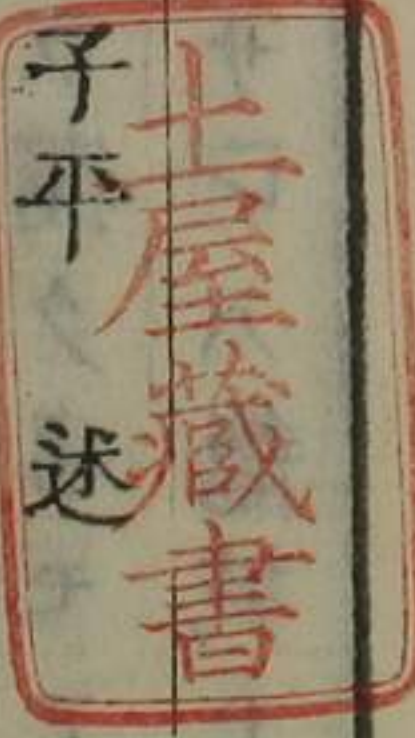 土屋藏書
子平 述